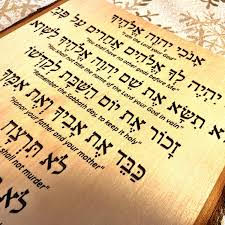 אנכי יהוה אלהיך
"I am the Lord your God"
יהיה לך אלהים אחרים על פני
"You shall have no other gods before Me"
לא תשא את שם יהוה אלהיך לשוא
"You shall not take the name of the Lord your God in vain"
זכור את יום השבת לקדשו
"Remember the Sabbath Day, to keep it holy"
כבד את אביך ואת אמך
"Honor your father and your mother"
לא תרצח
shall not murder"
לא